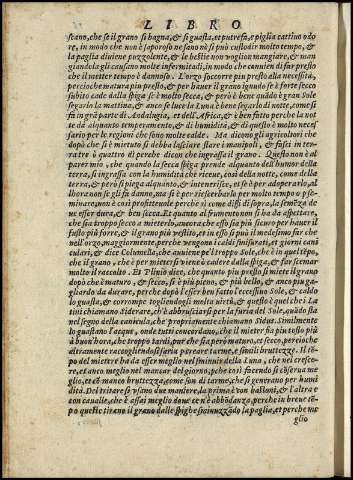 LIBRO
scano, che se il grano si bagna, & si guasta, et putrefà, e piglia cattivo odo
re, in modo che non è saporoso ne sano nè si può custodir molto tempo, &
la paglia diviene puzzolente, & le bestie non voglion mangiare, & man
giandola gli causano molte infermitati, in modo che convien di far presto
che il metter tempo è dannoso. L'orzo soccorre piu presto alla necessità,
percioche matura piu presto, & per haver il grano ignudo se è forte secco
subito cade dalla spiga se è molto secca, & però è bene quãdo è gran Sole
segarlo la mattina, & anco se luce la Luna è bene segarlo di notte, come si
fa in grã parte di Andalugia, et dell'Africa, & è ben fatto perche la not
te dà alquanto temperamento, & di humidità, & di questo è molto neces
sario per le regioni che sono molte calde. Ma dicono gli agricoltori che
dopò che si è mietuto si debba lasciare stare i manipoli, & fasci in terra
tre ò quattro dì perche dicon che ingrassa il grano. Questo non è di
parer mio, che quando la secca spiga prende alquanto dell'humor della
terra, si ingrassa con la humidità che riceve, così della notte, come della
terra, & però si piega alquanto, & intenerisce, et se è per adoperarlo al
lhora non se gli fa danno, ma se è per riserbarlo per molto tempo o per se
minare, non è così profittevole perche si come dissi di sopra, la semẽza de
ve esser dura, & ben secca. Et quanto al frumento non si ha da aspettare,
che sia troppo secco a mieterlo, ancora che esso sia più sicuro per haver il
fusto più forte, & il grano più vestito, et in esso si può il medesimo far che
nell'orzo, maggiormente, perche vengono i caldi smisurati, et giorni cani
culari, & dice Columella, che avviene pel troppo Sole, che è in quel tẽpo,
che il grano, che è per mietersi viene à cadere dalla spiga, & fa scemar
molto il raccolto. Et Plinio dice, che quanto piu presto si miete il grano
dopò che è maturo, & secco, si è più pieno, & più bello, & anco piu ga-
gliardo da durare, perche dopò l'esser ben fatto l'eccessivo Sole, & caldo
lo guasta, & corrompe togliendogli molta virtù, & questo è quel che i La
tini chiamano Siderare, ch'è abbrusciarsi per la furia del Sole, quãdo sta
nel segno della canicula, che propriamente chiamano Sidus. Similmente
lo guastano l'acque, onde tutti concordano, che il mieter sia piu tosto più
à buon'hora, che troppo tardi, pur che sia però maturo, et secco, percioche
altramente raccogliendosi saria peccare tarme, e simili bruttezze. Il tẽ-
po del mietere hà da esser meglio nel sminuir della Luna, che nel cresce-
re, et anco meglio nel mancar del giorno, perche così facendo si conserva me
glio, et ce manco bruttezza, come son di tarme, che si generano per humi
dità. Del tritare si usano due maniere, la prima è con balloni, & l'altra è
con cavalle, che è assai meglio dove ce n'è abbõdanza, perche in breve tẽ-
po queste tirano il grano dalle spighe sminuzzado la paglia, et perche me
glio